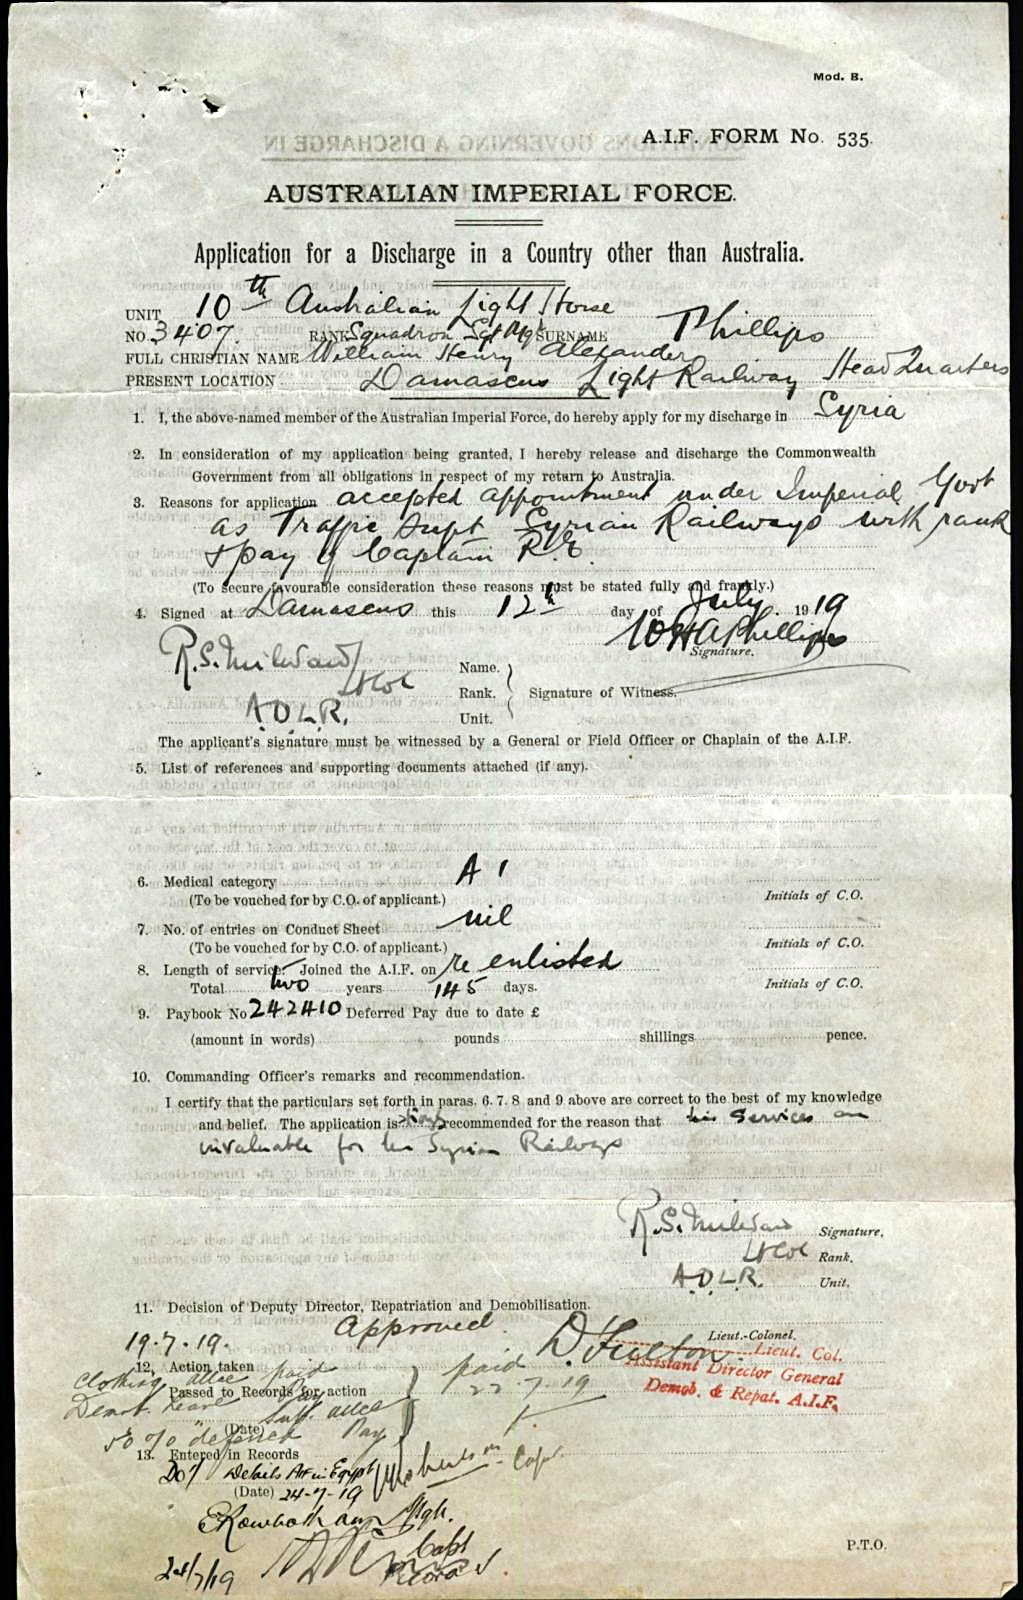 Mod. B.
A.I.F. FORM No. 535.
AUSTRALIAN IMPERIAL FORCE.
Application for a Discharge in a Country other than Australia.
UNIT 10th Australian Light Horse
NO. 3407. RANK Squadron Sgt Mjr SURNAME Phillips
FULL CHRISTIAN NAME William Henry Alexander
PRESENT LOCATION Damascus Light Railway Head Quarters
1. I, the above-named member of the Australian Imperial Force, do hereby apply for my discharge in Syria
2. In consideration of my application being granted, I hereby release and discharge the Commonwealth
Government from all obligations in respect of my return to Australia.
3. Reasons for application accepted appointment under Imperial Govt
as Traffic Supt Syrian Railways with rank
& pay of Captain R.E.
(To secure favourable consideration these reasons must be stated fully and frankly.)
4. Signed at Damascus this 12th day of July 1919
WHAPhillips
Signature.
R.S. Milward Name.
Lt Col Rank. Signature of Witness.
A.D.L.R. Unit.
The applicant's signature must be witnessed by a General or Field Officer or Chaplain of the A.I.F.
5. List of references and supporting documents attached (if any).
6. Medical category A 1
(To be vouched for by C.O. of applicant.) Initials of C.O.
7. No. of entries on Conduct Sheet nil
(To be vouched for by C.O. of applicant.) Initials of C.O.
8. Length of service: Joined the A.I.F. on re enlisted
Total two years 145 days. Initials of C.O.
9. Paybook No 242410 Deferred Pay due to date £
(amount in words) pounds shillings pence.
10. Commanding Officer's remarks and recommendation.
I certify that the particulars set forth in paras. 6. 7. 8 and 9 above are correct to the best of my knowledge
and belief. The application is strongly recommended for the reason that his services are
invaluable for the Syrian Railways
R.S. Milward Signature.
Lt Col Rank.
A.D.L.R. Unit.
11. Decision of Deputy Director, Repatriation and Demobilisation.
Approved.
19.7.19. D. Fulton Lieut.-Colonel.
Lieut. Col.
Assistant Director General
Demob. & Repat. A.I.F.
12. Action taken
Clothing allce paid
Passed to Records for action
paid
22.7.19
Demob. Leave Pay
Subs. allce
(Date)
50% deferred Pay
13. Entered in Records
Details AIF in Egypt
Capt.
(Date) 24-7-19
Capt
Records
24/7/19
P.T.O.